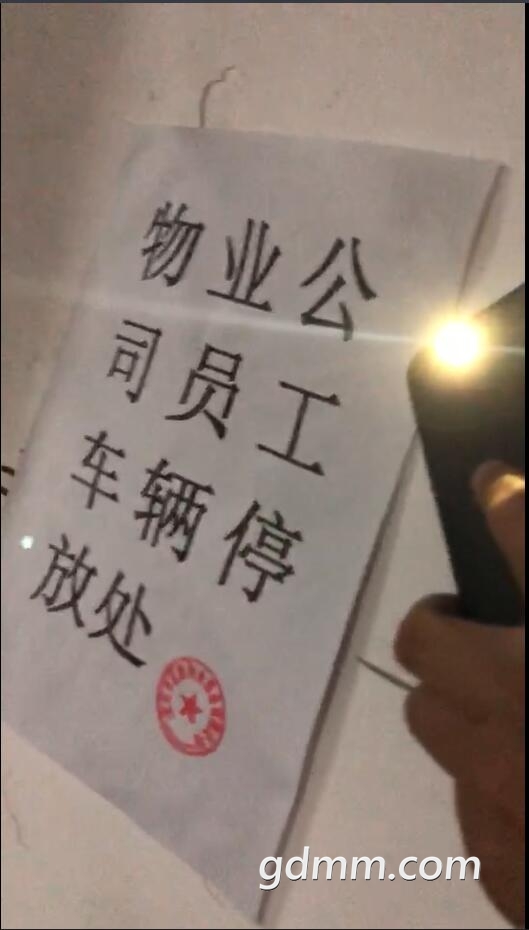 物业公
司员工
车辆停
放处
gdmm.com